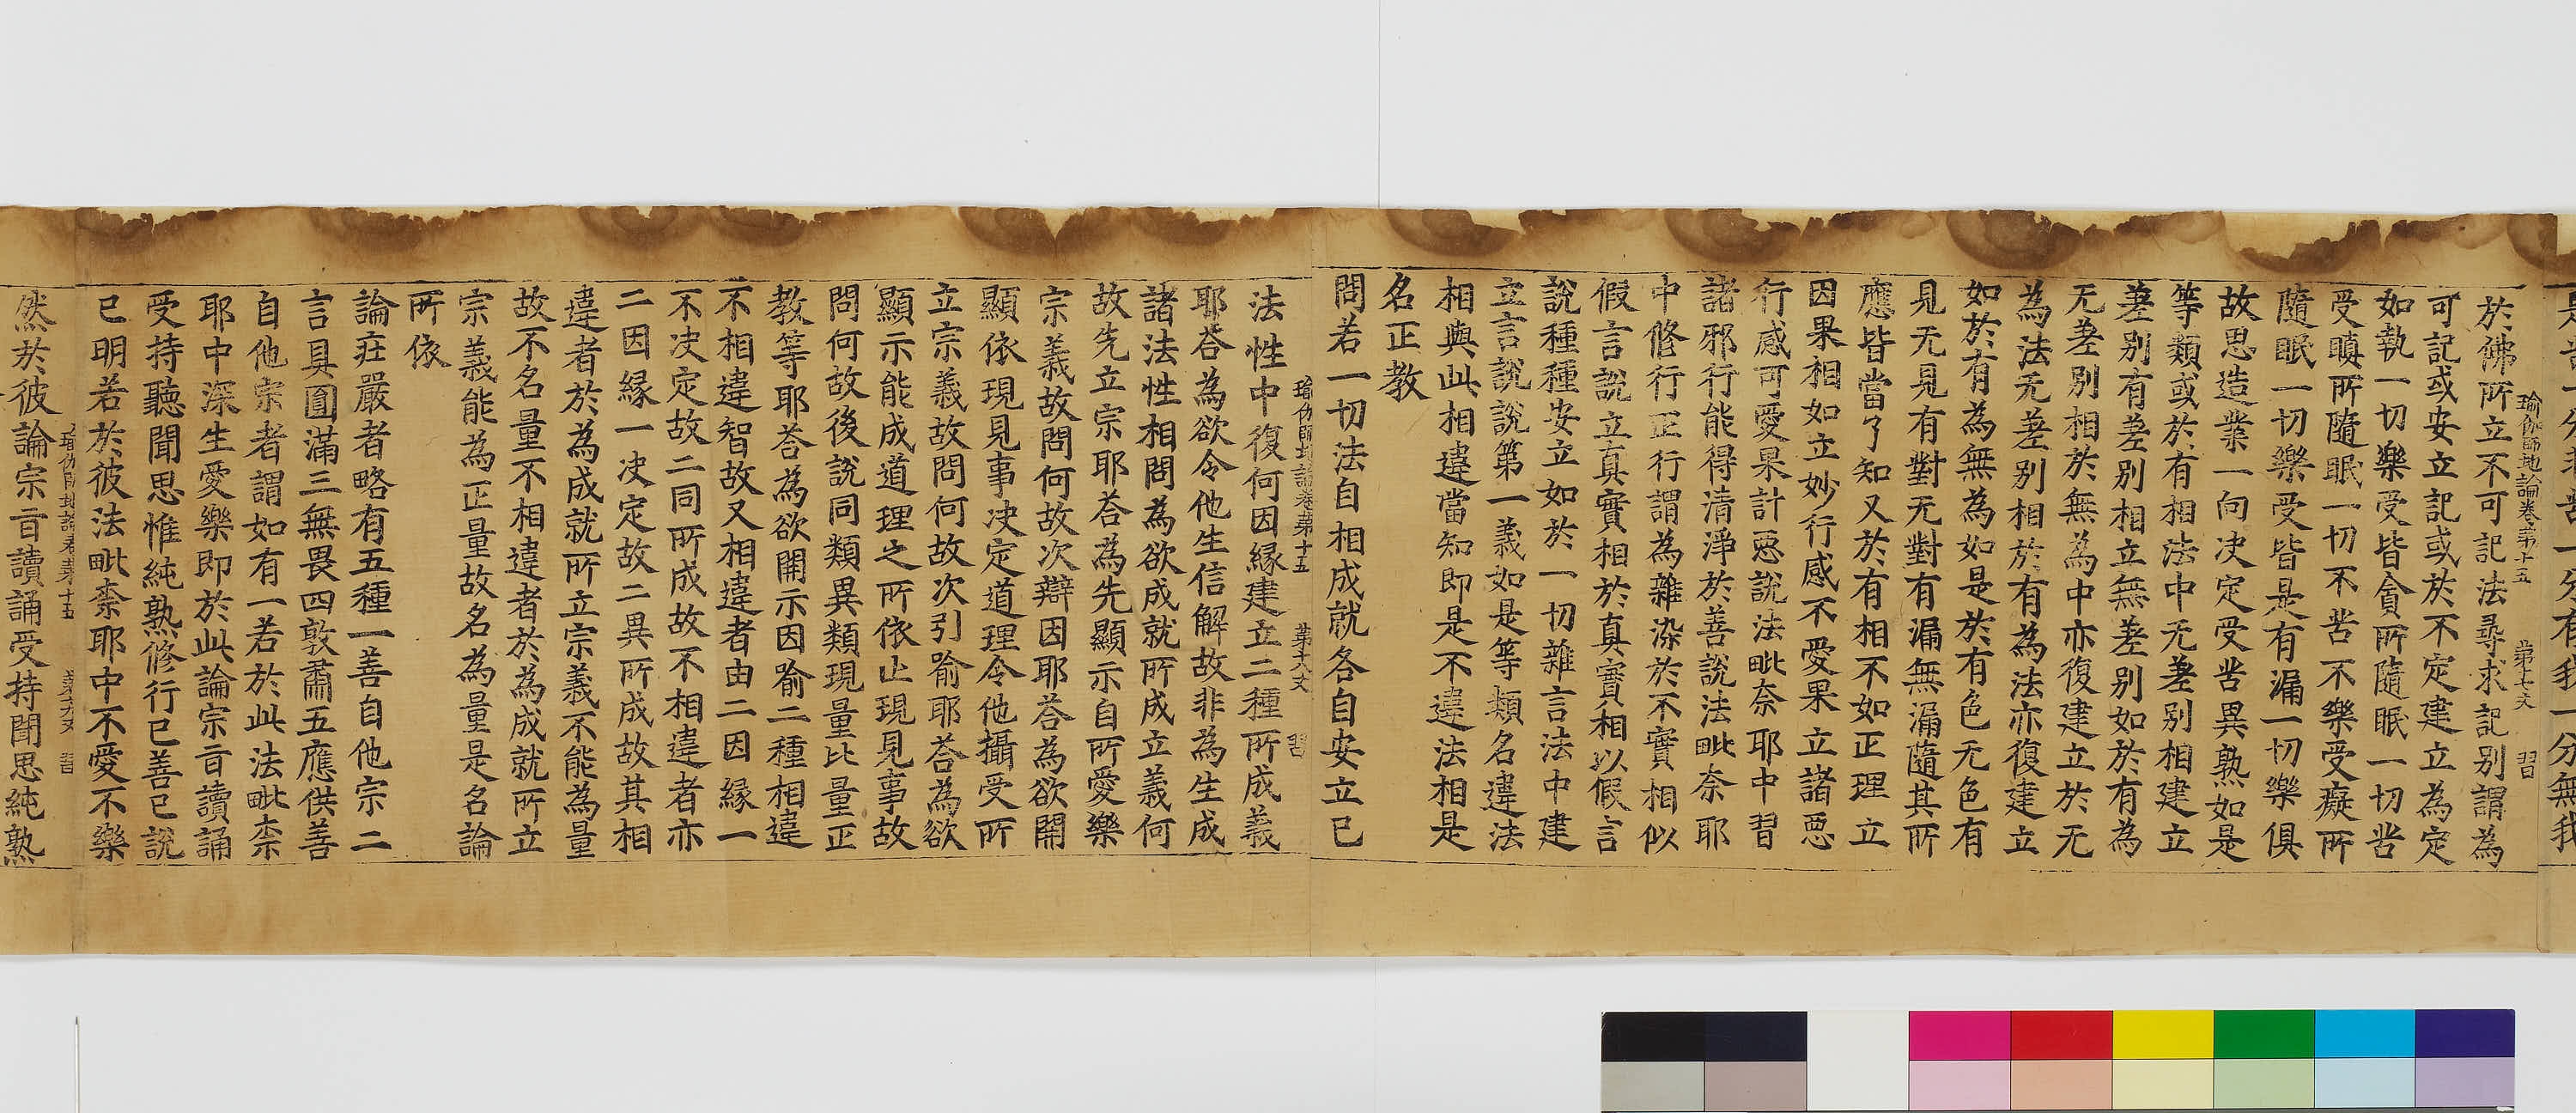 一分有我一分無我
瑜伽師地論卷第十五 第七丈 習
於佛所立不可記法尋求記别謂為
可記或安立記或於不定建立為定
如執一切樂受皆貪所隨眠一切苦
受瞋所隨眠一切不苦不樂受癡所
隨眠一切樂受皆是有漏一切樂俱
故思造業一向决定受苦異熟如是
等類或於有相法中无差别相建立
差别有差别相立無差别如於有為
无差别相於無為中亦復建立於无
為法无差别相於有為法亦復建立
如於有為無為如是於有色无色有
見无見有對无對有漏無漏隨其所
應皆當了知又於有相不如正理立
因果相如立妙行感不愛果立諸惡
行感可愛果計惡說法毗奈耶中習
諸邪行能得清淨於善說法毗奈耶
中修行正行謂為雜染於不實相似
假言說立真實相於真實相以假言
說種種安立如於一切離言法中建
立言說說第一義如是等類名違法
相與此相違當知即是不違法相是
名正教
問若一切法自相成就各自安立已
瑜伽師地論卷第十五 第八丈 習
法性中復何因緣建立二種所成義
耶荅為欲令他生信解故非為生成
諸法性相問為欲成就所成立義何
故先立宗耶荅為先顯示自所愛樂
宗義故問何故次辯因耶荅為欲開
顯依現見事决定道理令他攝受所
立宗義故問何故次引喻耶荅為欲
顯示能成道理之所依止現見事故
問何故後說同類異類現量比量正
教等耶荅為欲開示因喻二種相違
不相違智故又相違者由二因緣一
不决定故二同所成故不相違者亦
二因緣一决定故二異所成故其相
違者於為成就所立宗義不能為量
故不名量不相違者於為成就所立
宗義能為正量故名為量是名論
所依
論莊嚴者略有五種一善自他宗二
言具圓滿三無畏四敦肅五應供善
自他宗者謂如有一若於此法毗柰
耶中深生愛樂即於此論宗旨讀誦
受持聽聞思惟純熟修行已善已說
已明若於彼法毗柰耶中不愛不樂
瑜伽師地論卷第十五 第九丈 習
然於彼論宗旨讀誦受持聞思純熟